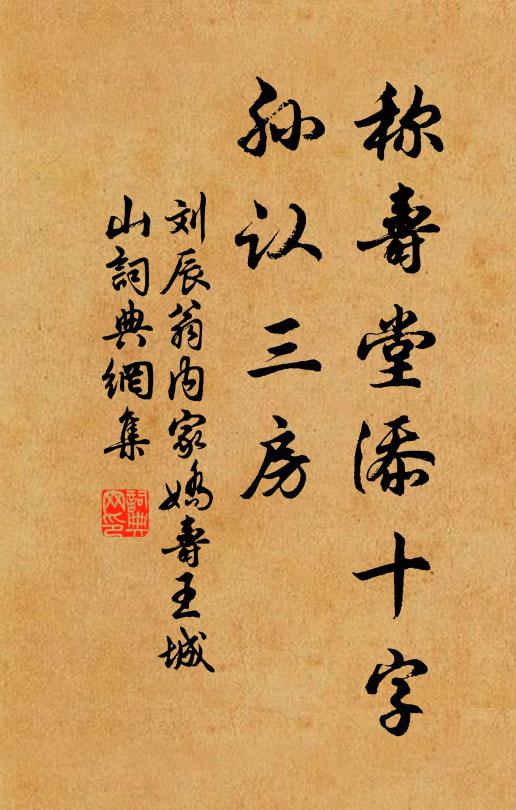 称壽堂添十字
孙认三房
刘辰翁内家嬌壽王城
山詞典網集
詞典
网印